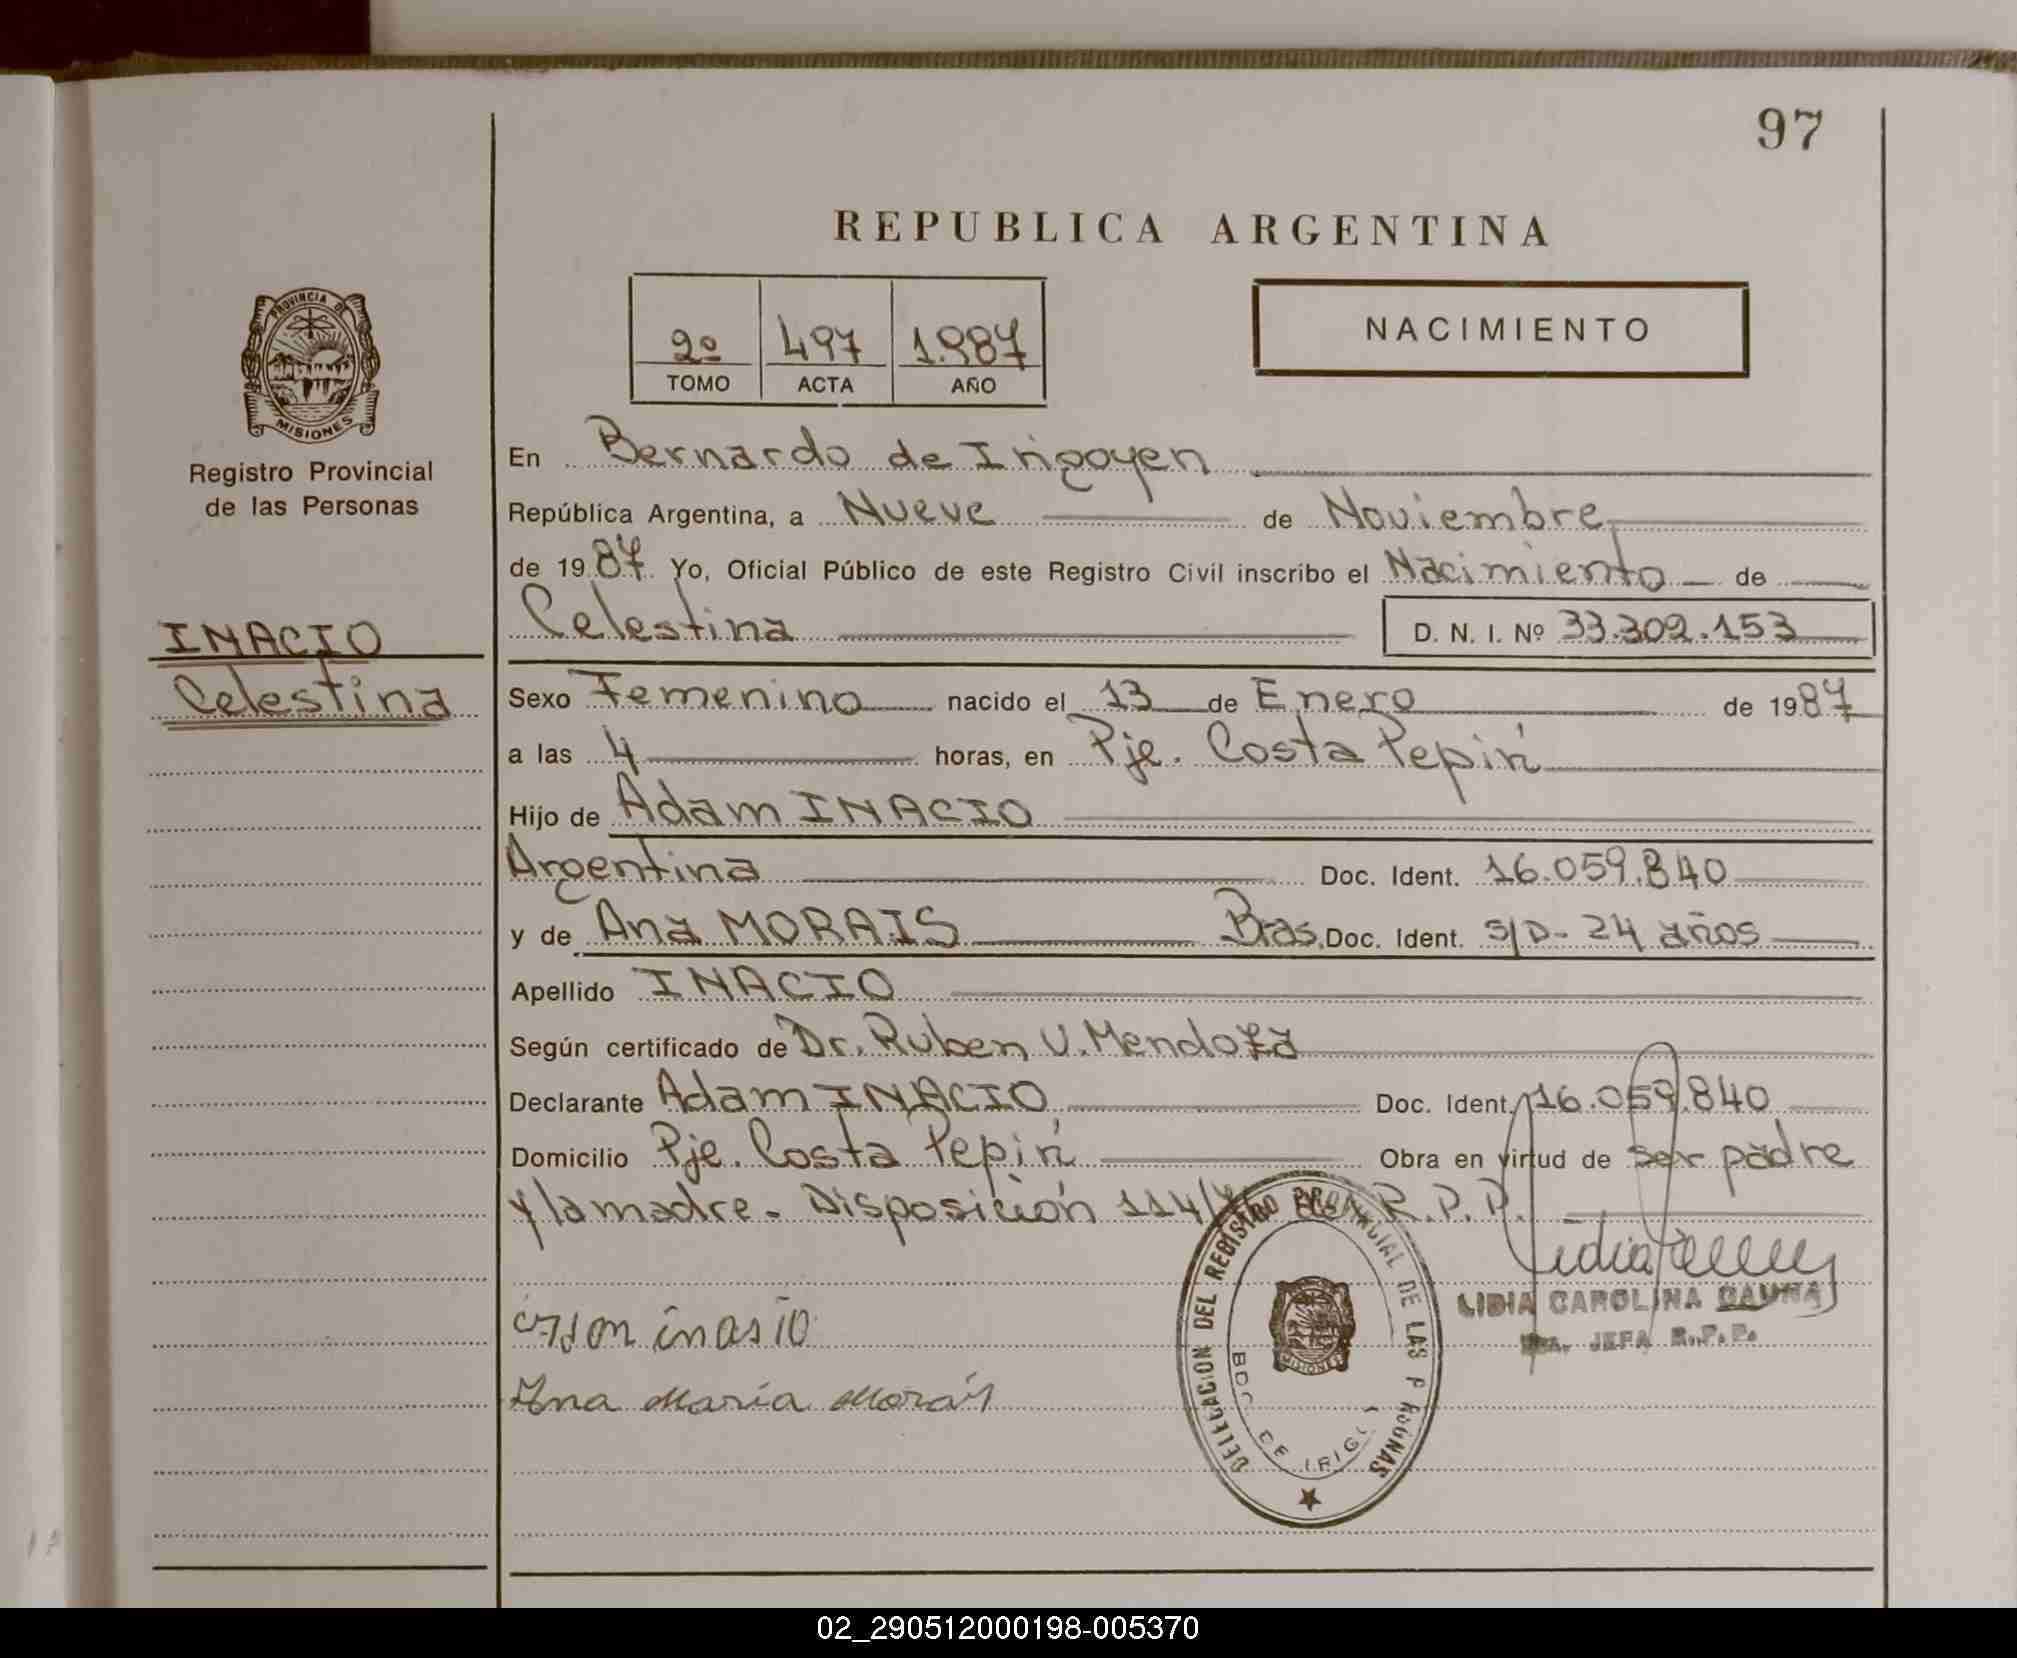 97
REPUBLICA ARGENTINA
2º 497 1.987
TOMO ACTA AÑO
NACIMIENTO
PROVINCIA DE
MISIONES
Registro Provincial
de las Personas
INACIO
Celestina
En Bernardo de Irigoyen
República Argentina, a Nueve de Noviembre
de 1987 Yo, Oficial Público de este Registro Civil inscribo el Nacimiento de
Celestina D. N. I. Nº 33.302.153
Sexo Femenino nacido el 13 de Enero de 1987
a las 4 horas, en Pje. Costa Pepirí
Hijo de Adam INACIO
Argentina Doc. Ident. 16.059.840
y de Ana MORAIS Bras. Doc. Ident. S/D - 24 años
Apellido INACIO
Según certificado de Dr. Ruben V. Mendoza
Declarante Adam INACIO Doc. Ident. 16.059.840
Domicilio Pje. Costa Pepirí Obra en virtud de ser padre
y la madre - Disposición 114/ R.P.P.
LIDIA CAROLINA GAUNA
JEFA R.P.P.
inasio
Ana Maria Morais
DELEGACION DEL REGISTRO PROVINCIAL DE LAS PERSONAS
BDO. DE IRIG
02_290512000198-005370